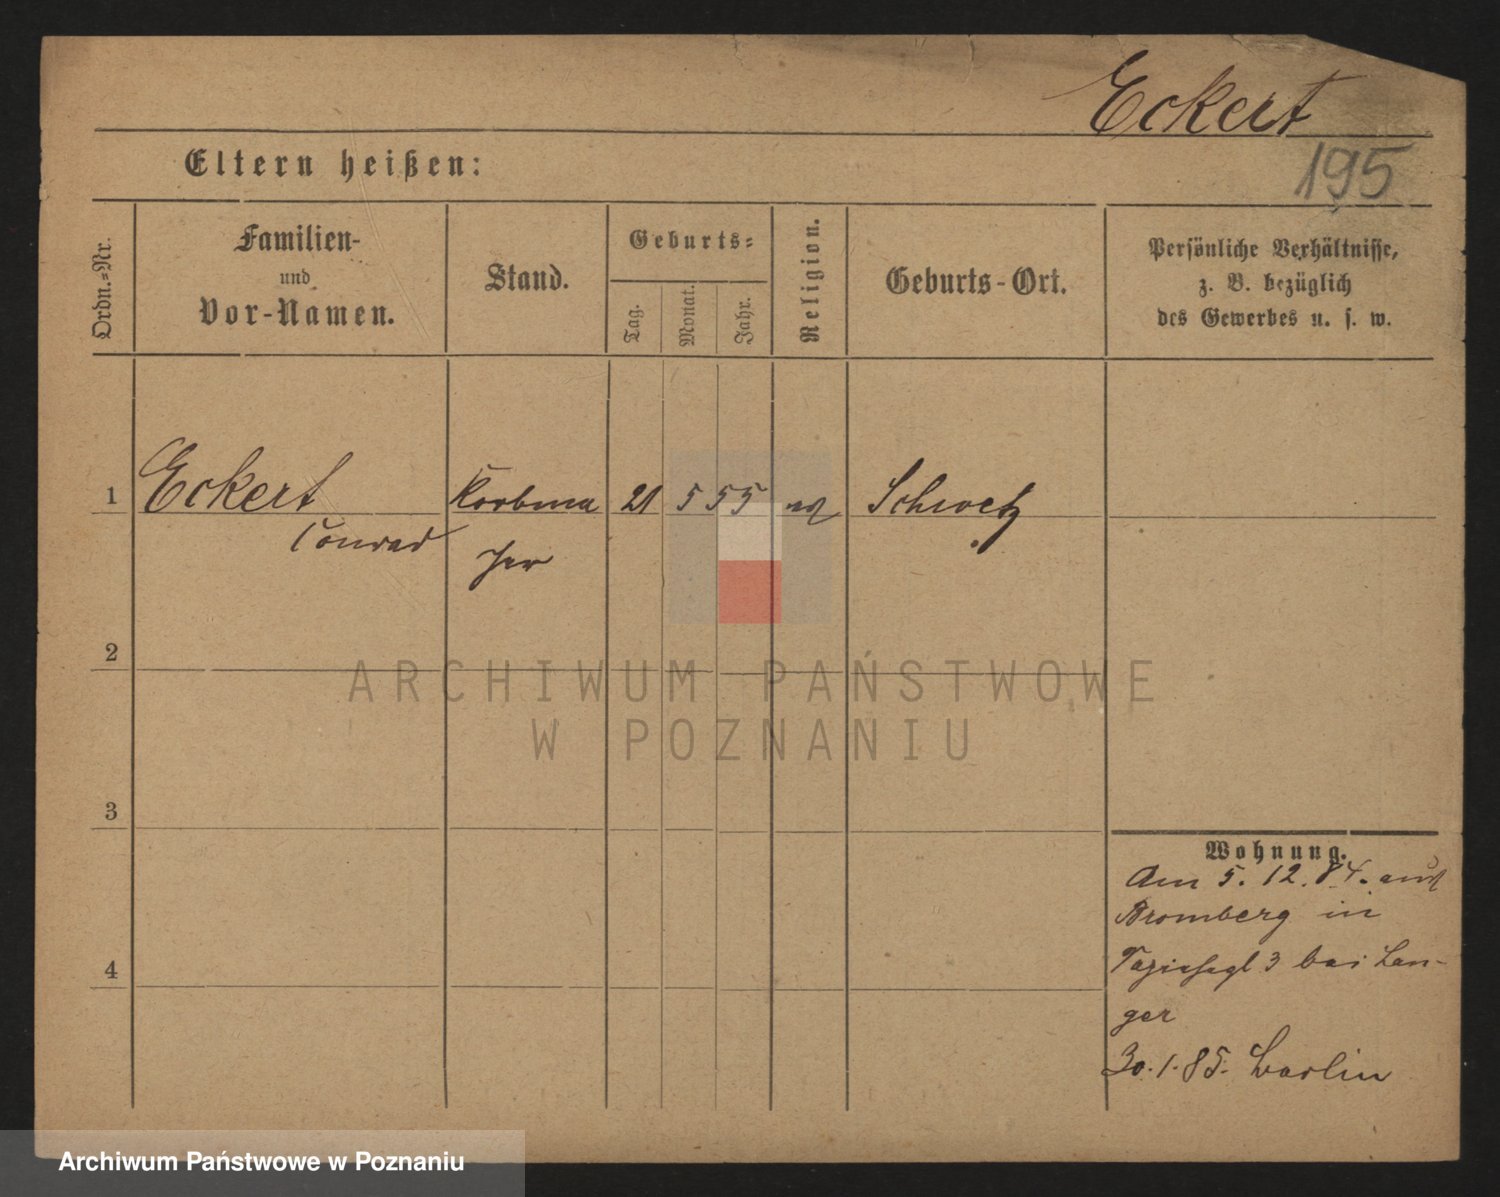 Eckert
195
Eltern heißen:
Ordn.=Nr.
Familien-
und
Vor-Namen.
Stand.
Geburts=
Tag.
Monat.
Jahr.
Religion.
Geburts-Ort.
Persönliche Verhältnisse,
z. B. bezüglich
des Gewerbes u. s. w.
1 Eckert Korbma 21 5 55 Schwetz
Conrad
cher
2
3
4
Wohnung.
Am 5. 12. 84. aus
Bromberg in
3 bei Lan-
ger
30. 1. 85. Berlin
ARCHIWUM PAŃSTWOWE
W POZNANIU
Archiwum Państwowe w Poznaniu